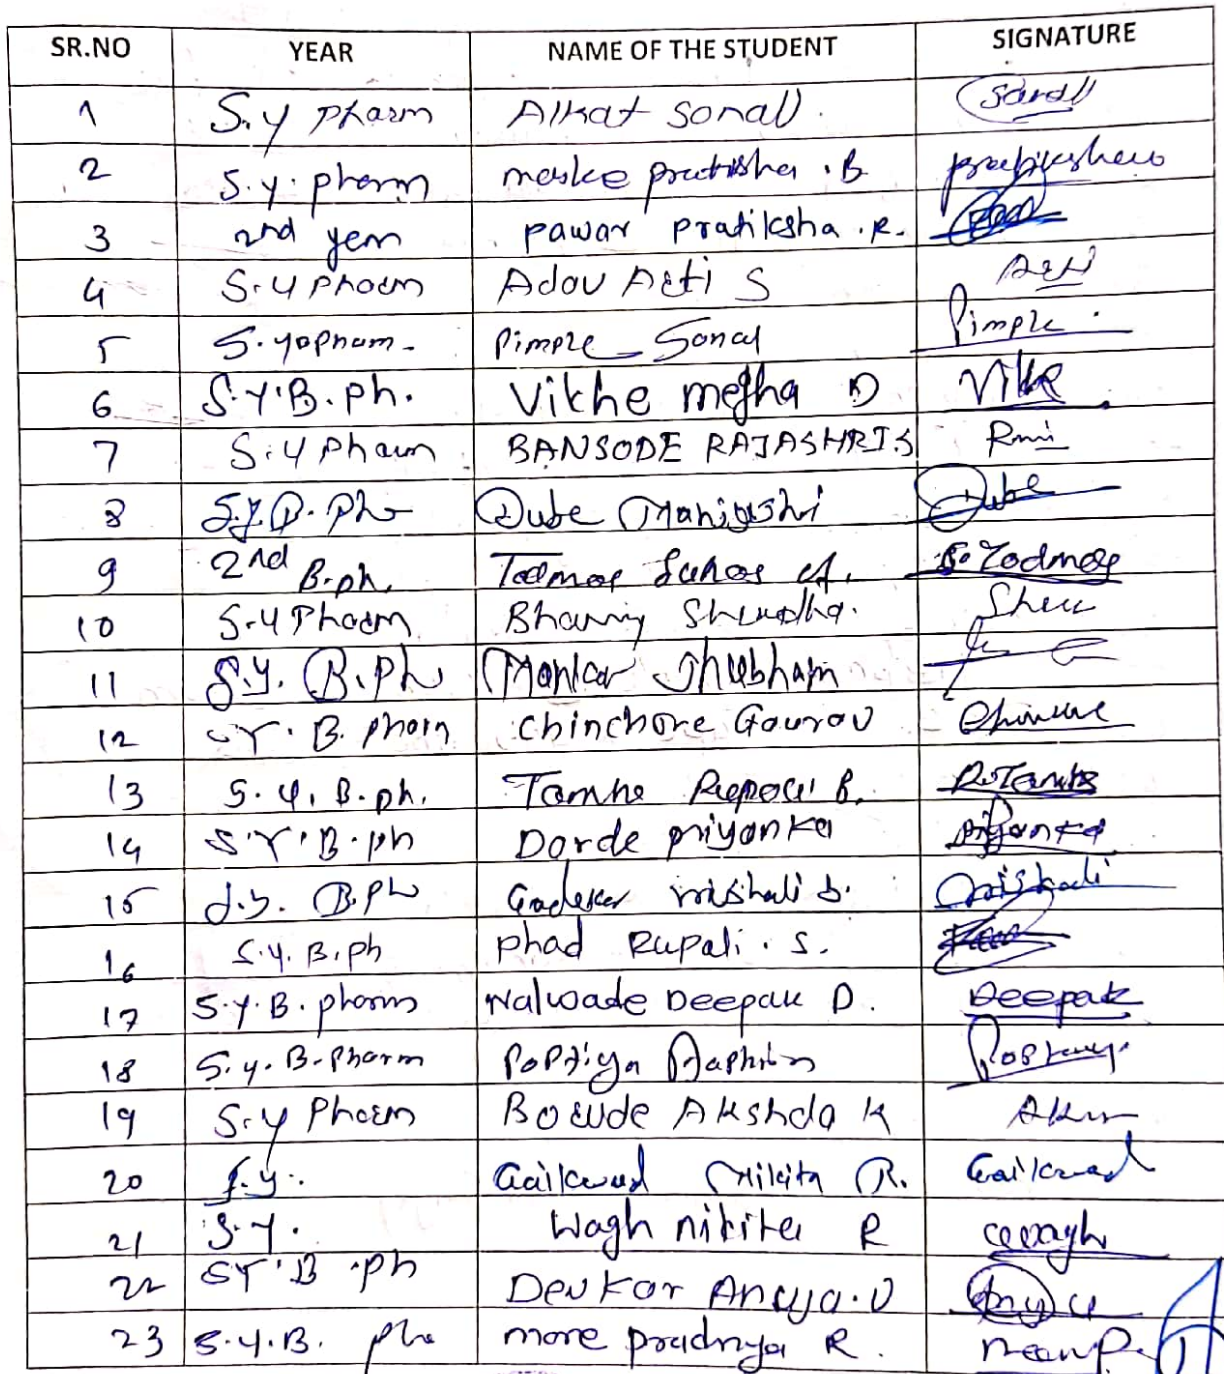 SR.NO YEAR NAME OF THE STUDENT SIGNATURE
1 S.y Pharm Alhat Sonali Sonali
2 S.y. pharm maske pratiksha . B
3 2nd year pawar pratiksha . R.
4 S.Y Pharm Adav Arti S Arti
5 Pimple Sonal Pimple
6 S.Y.B.ph. Vikhe megha D
7 S.Y Pharm BANSODE RAJASHRI.S
8 S.Y.B.Ph Dube Manjushri Dube
9 2nd B.ph. S. Todmos
10 S.Y Pharm
11 S.Y. B.Ph Mankar Shubham
12 SY. B. pharm Chinchore Gaurav
13 S.Y. B.ph. B.
14 S.Y.B.ph Dorde priyanka priyanka
15 S.Y. B.ph Gadekar vaishali S. vaishali
16 S.Y. B.ph phad Rupali . S.
17 S.Y.B. pharm Nalwade Deepak D. Deepak
18 S.y. B-Pharm
19 S.Y Pharm Borude Akshda K
20 S.y. Gaikwad Nikita R. Gaikwad
21 S.Y. Wagh nikita R wagh
22 SY B .ph Devkar Anuja.U Anuja
23 S.Y.B. ph more pradnya R.